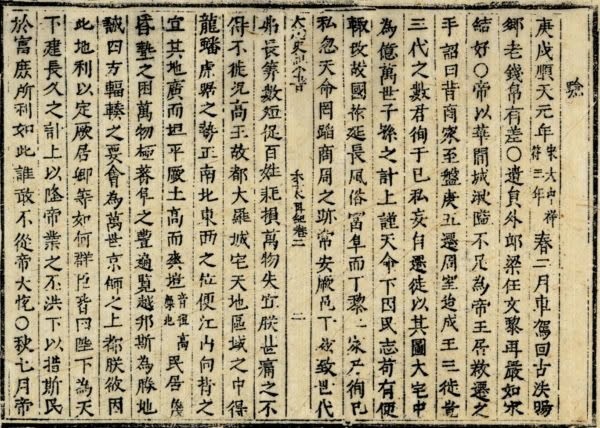 庚戌順天元年宋大中祥符三年春二月車駕回古法賜
鄉老錢帛有差○遣員外郎梁任文黎再嚴如宋
結好○帝以華閭城湫隘不足為帝王居欲遷之
手詔曰昔商家至盤庚五遷周室迨成王三徙豈
三代之數君徇于己私妄自遷徙以其圖大宅中
為億萬世子孫之計上謹天命下因民志苟有便
輒改故國祚延長風俗富阜而丁黎二家乃徇己
私忽天命罔蹈商周之跡常安厥邑于茲致世代
史記全書 李太祖紀卷二 二
弗長筭數短促百姓耗損萬物失宜朕甚痛之不
得不徙況高王故都大羅城宅天地區域之中得
龍蟠虎踞之勢正南北東西之位便江山向背之
宜其地廣而坦平厥土高而爽塏音高燥也民居蔑
昏墊之困萬物極蕃阜之豐遍覽越邦斯為勝地
誠四方輻輳之要會為萬世京師之上都朕欲因
此地利以定厥居卿等如何群臣皆曰陛下為天
下建長久之計上以隆帝業之丕洪下以措斯民
於富庶所利如此誰敢不從帝大悅○秋七月帝